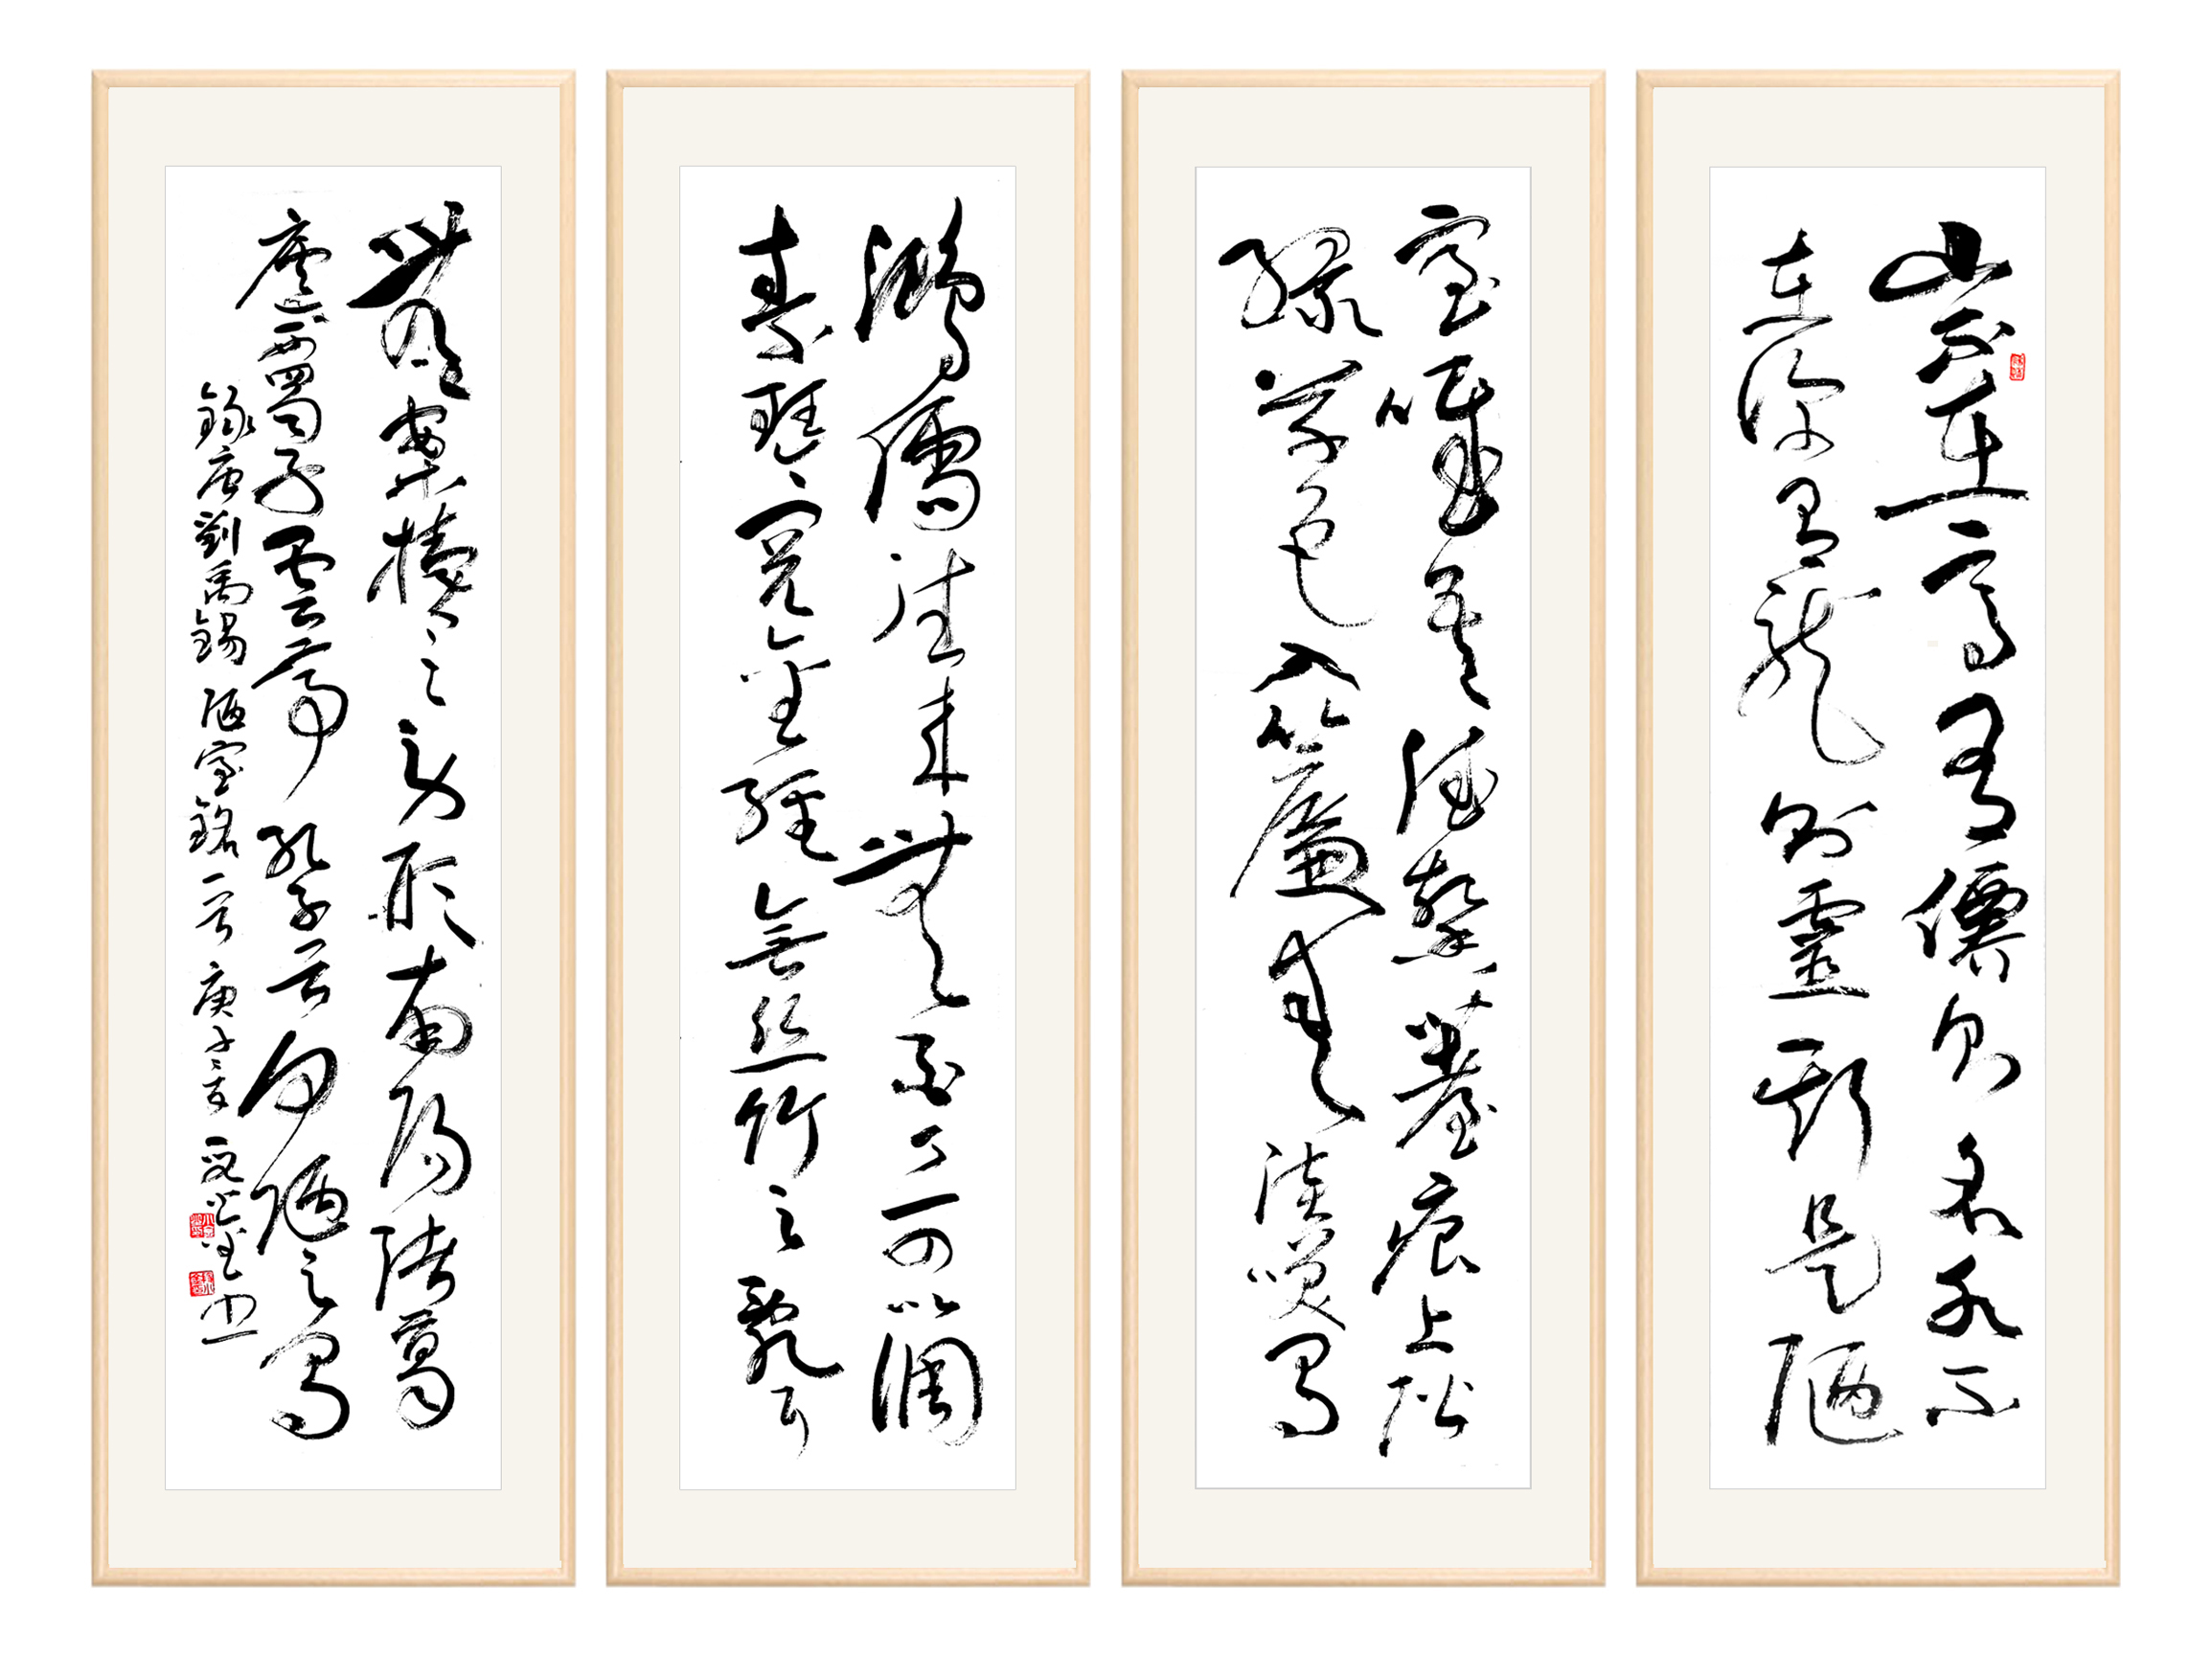 山不在高有僊則名水不
在深有龍則靈斯是陋
室唯吾德馨苔痕上階
綠草色入簾青談笑有
鴻儒往來無白丁可以調
素琴閱金經無絲竹之亂耳
無案牘之勞形南陽諸葛
廬西蜀子雲亭孔子云何陋之有
錄唐劉禹錫陋室銘一首庚子